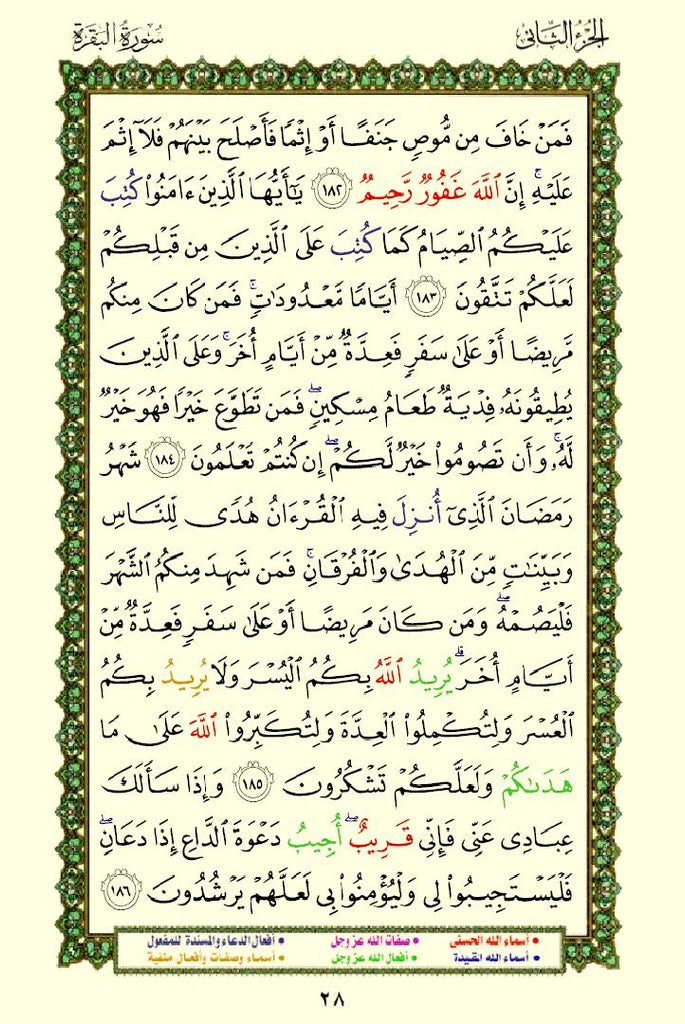 الجزء الثاني
سورة البقرة
فَمَنْ خَافَ مِن مُّوصٍ جَنَفًا أَوْ إِثْمًا فَأَصْلَحَ بَيْنَهُمْ فَلَآ إِثْمَ
عَلَيْهِ ۚ إِنَّ ٱللَّهَ غَفُورٌ رَّحِيمٌ ١٨٢ يَٰٓأَيُّهَا ٱلَّذِينَ ءَامَنُوا۟ كُتِبَ
عَلَيْكُمُ ٱلصِّيَامُ كَمَا كُتِبَ عَلَى ٱلَّذِينَ مِن قَبْلِكُمْ
لَعَلَّكُمْ تَتَّقُونَ ١٨٣ أَيَّامًا مَّعْدُودَٰتٍ ۚ فَمَن كَانَ مِنكُم
مَّرِيضًا أَوْ عَلَىٰ سَفَرٍ فَعِدَّةٌ مِّنْ أَيَّامٍ أُخَرَ ۚ وَعَلَى ٱلَّذِينَ
يُطِيقُونَهُۥ فِدْيَةٌ طَعَامُ مِسْكِينٍ ۖ فَمَن تَطَوَّعَ خَيْرًا فَهُوَ خَيْرٌ
لَّهُۥ ۚ وَأَن تَصُومُوا۟ خَيْرٌ لَّكُمْ ۖ إِن كُنتُمْ تَعْلَمُونَ ١٨٤ شَهْرُ
رَمَضَانَ ٱلَّذِىٓ أُنزِلَ فِيهِ ٱلْقُرْءَانُ هُدًى لِّلنَّاسِ
وَبَيِّنَٰتٍ مِّنَ ٱلْهُدَىٰ وَٱلْفُرْقَانِ ۚ فَمَن شَهِدَ مِنكُمُ ٱلشَّهْرَ
فَلْيَصُمْهُ ۖ وَمَن كَانَ مَرِيضًا أَوْ عَلَىٰ سَفَرٍ فَعِدَّةٌ مِّنْ
أَيَّامٍ أُخَرَ ۗ يُرِيدُ ٱللَّهُ بِكُمُ ٱلْيُسْرَ وَلَا يُرِيدُ بِكُمُ
ٱلْعُسْرَ وَلِتُكْمِلُوا۟ ٱلْعِدَّةَ وَلِتُكَبِّرُوا۟ ٱللَّهَ عَلَىٰ مَا
هَدَىٰكُمْ وَلَعَلَّكُمْ تَشْكُرُونَ ١٨٥ وَإِذَا سَأَلَكَ
عِبَادِى عَنِّى فَإِنِّى قَرِيبٌ ۖ أُجِيبُ دَعْوَةَ ٱلدَّاعِ إِذَا دَعَانِ ۖ
فَلْيَسْتَجِيبُوا۟ لِى وَلْيُؤْمِنُوا۟ بِى لَعَلَّهُمْ يَرْشُدُونَ ١٨٦
• أسماء الله الحسنى • صفات الله عز وجل • أفعال الدعاء والمسندة للمفعول
• أسماء الله المقيدة • أفعال الله عز وجل • أسماء وصفات وأفعال منفية
٢٨